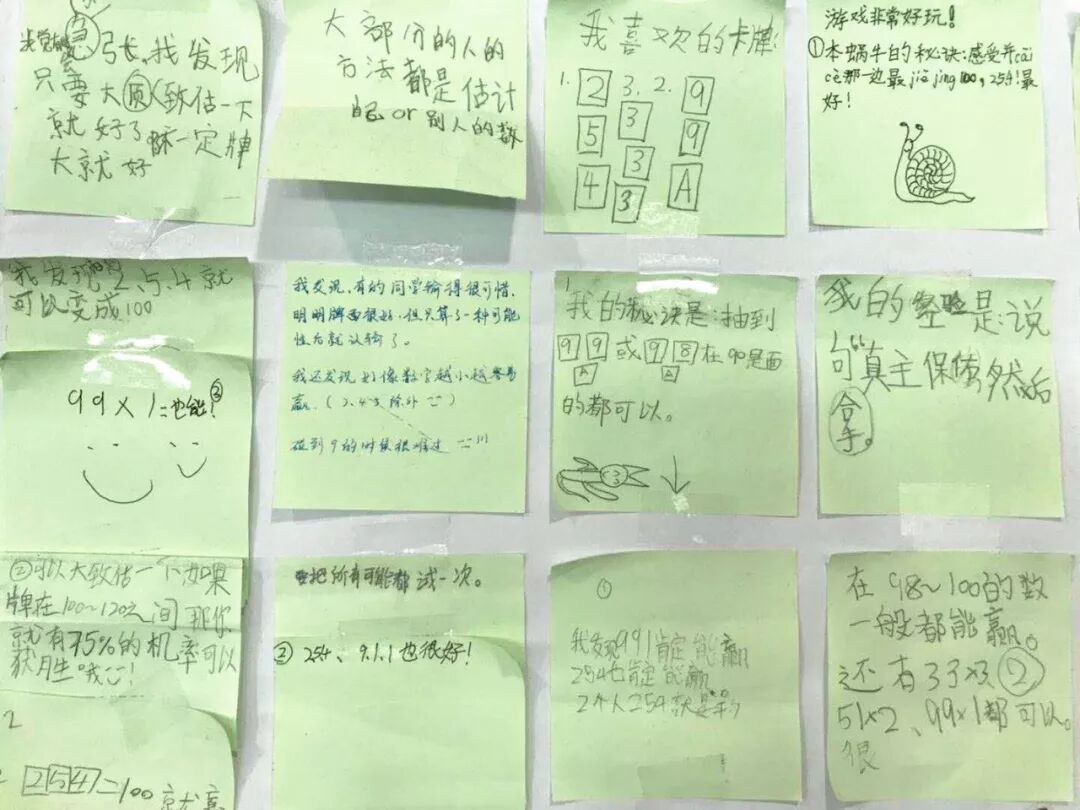 张,我发现
只要大致估一下
就好了 牌
大就好
大部分的人的
方法都是估计
自己or别人的数
我喜欢的卡牌:
1. 2 3. 2. 9
5 3 9
4 3 A
3
游戏非常好玩!
①本蜗牛的秘诀:感受并cāi
cè那一边最jiē jìng 100,254!最
好!
我发现 2、5、4就
可以变成100
99×1=也能!
我发现,有的同学输得很可惜,
明明牌面很好,但只算了一种可能
性后就认输了。
我还发现好像数字越小越容易
赢.(2.4.5除外
碰到9的时候很难过
1.
我的秘诀是:抽到
9 9 或 9 8 在90里面
A A
的都可以。
我的经验是:说
句“真主保佑”然后
合手。
②可以大致估一个,如果
牌在100~120之间那你
就有75%的机率可以
获胜哦!
2
2 5 4 =100 就
要把所有可能都试一次。
② 254、9.1.1也很好!
①
我发现991肯定能赢
254也肯定能赢
在98~100的数
一般都能赢。
还有33×3 ②
51×2、99×1都可以。
很